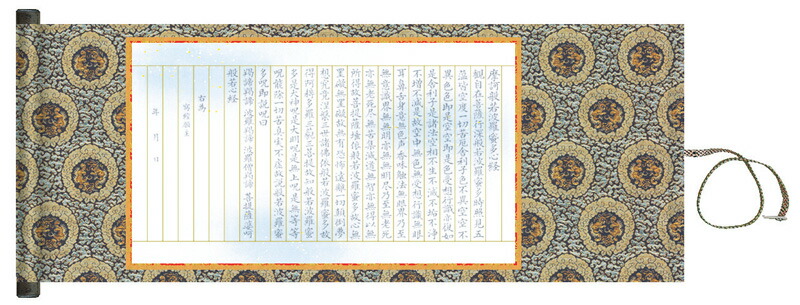 摩訶般若波羅蜜多心経
観自在菩薩行深般若波羅蜜多時照見五
蘊皆空度一切苦厄舎利子色不異空空不
異色色即是空空即是色受想行識亦復如
是舎利子是諸法空相不生不滅不垢不浄
不増不減是故空中無色無受想行識無眼
耳鼻舌身意無色声香味触法無眼界乃至
無意識界無無明亦無無明尽乃至無老死
亦無老死尽無苦集滅道無智亦無得以無
所得故菩提薩埵依般若波羅蜜多故心無
罣礙無罣礙故無有恐怖遠離一切顛倒夢
想究竟涅槃三世諸仏依般若波羅蜜多故
得阿耨多羅三藐三菩提故知般若波羅蜜
多是大神呪是大明呪是無上呪是無等等
呪能除一切苦真実不虚故説般若波羅蜜
多呪即説呪曰
羯諦羯諦 波羅羯諦 波羅僧羯諦 菩提薩婆呵
般若心経
右為
年 月 日